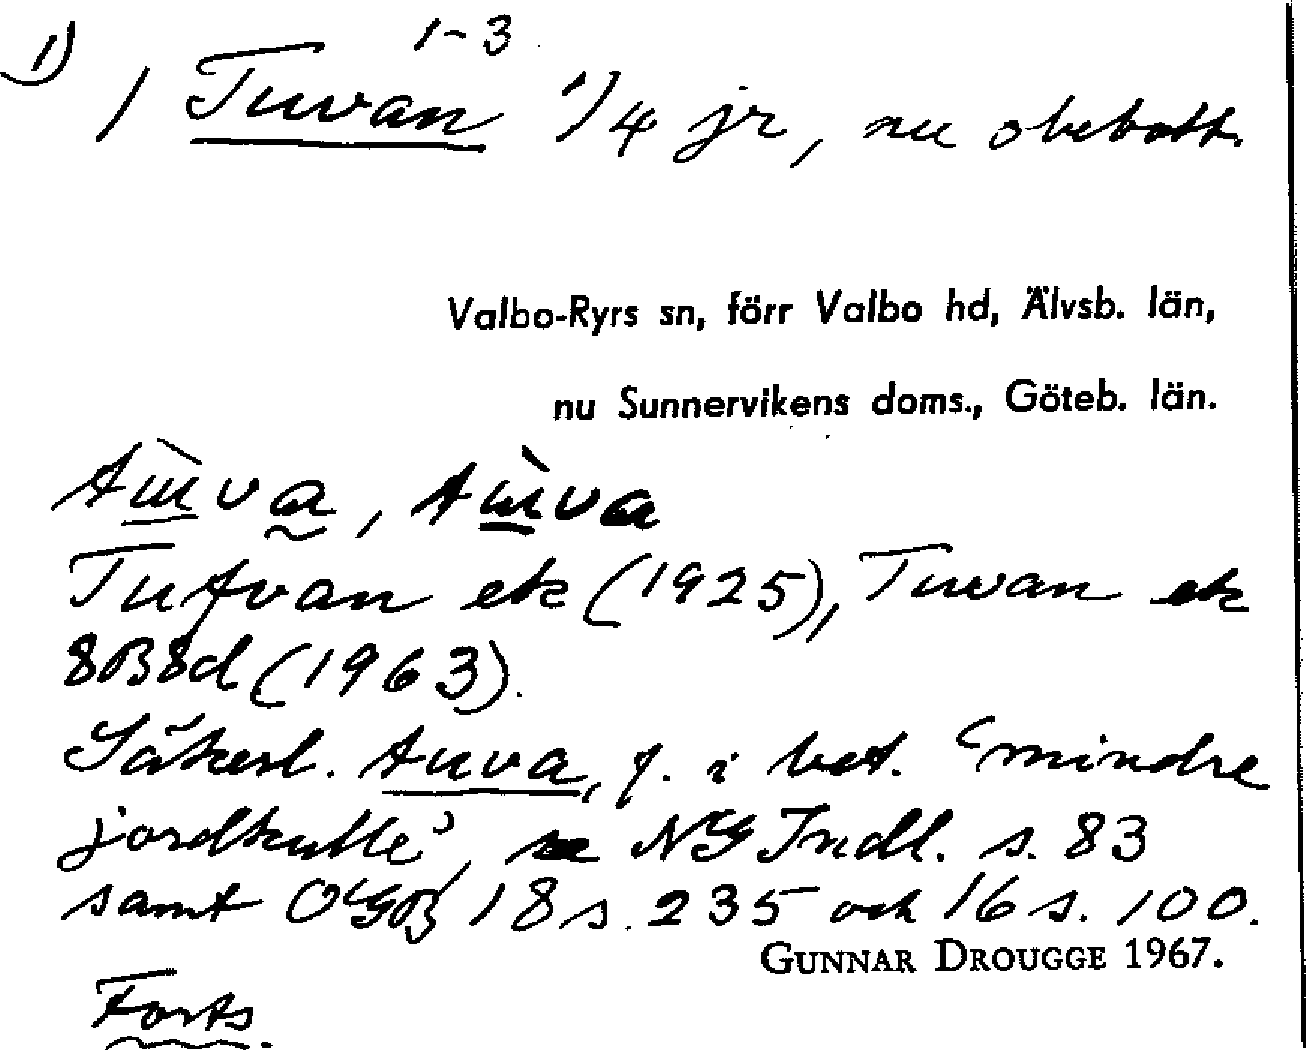 1) 1-3
1 Tuvan 1/4 jr, nu obebott.
Valbo-Ryrs sn, förr Valbo hd, Älvsb. län,
nu Sunnervikens doms., Göteb. län.
tù̱va̰, tù̱va
Tufvan ek (1925), Tuvan ek
8B8d (1963).
Säkerl. tuva, f. i bet. ‘mindre
jordkulle’, se NG Indl. s. 83
samt OGB 18 s. 235 och 16 s. 100.
GUNNAR DROUGGE 1967.
Forts.